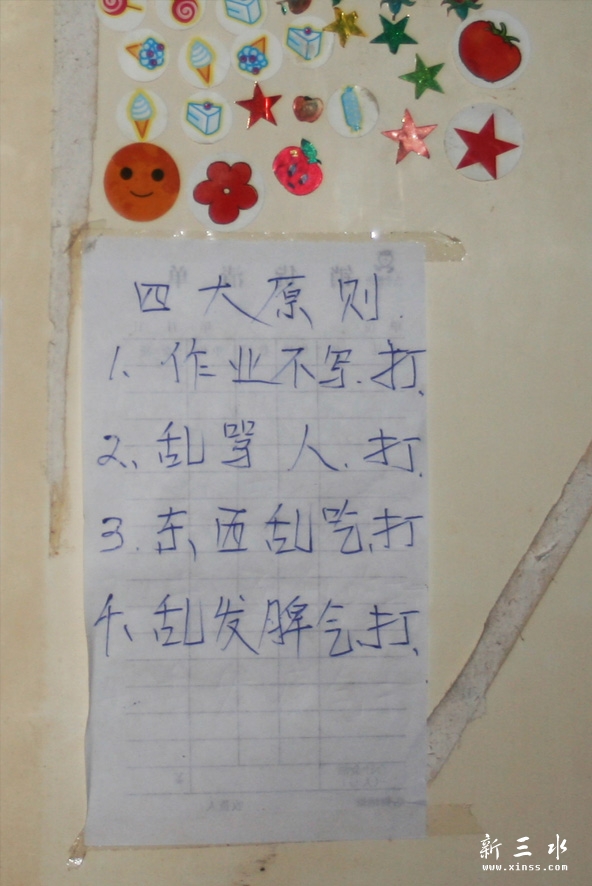 四大原则
1、作业不写、打、
2、乱骂人、打、
3、东西乱吃、打
4、乱发脾气、打、
新三水
www.xinss.com